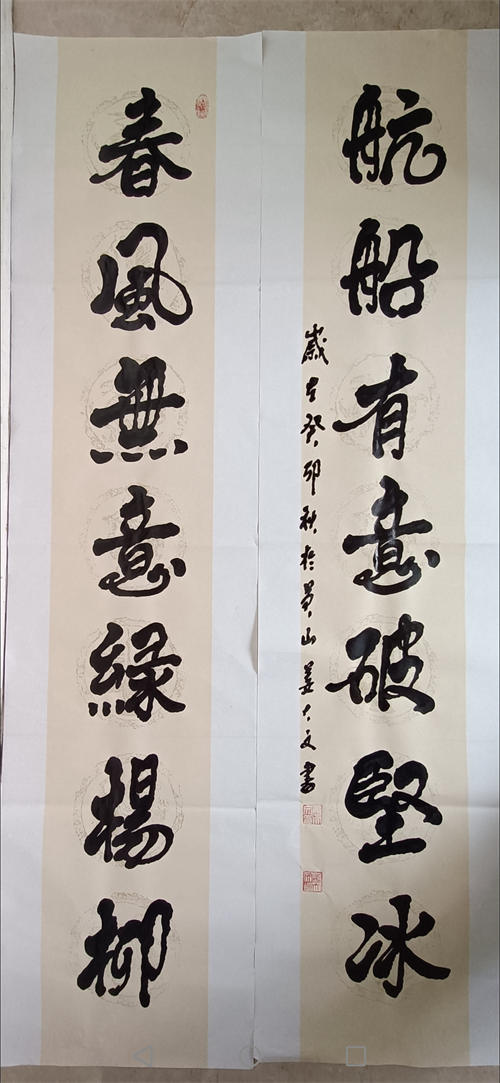 春風無意綠楊柳
航船有意破堅冰
歲在癸卯秋於蜀山姜大文書